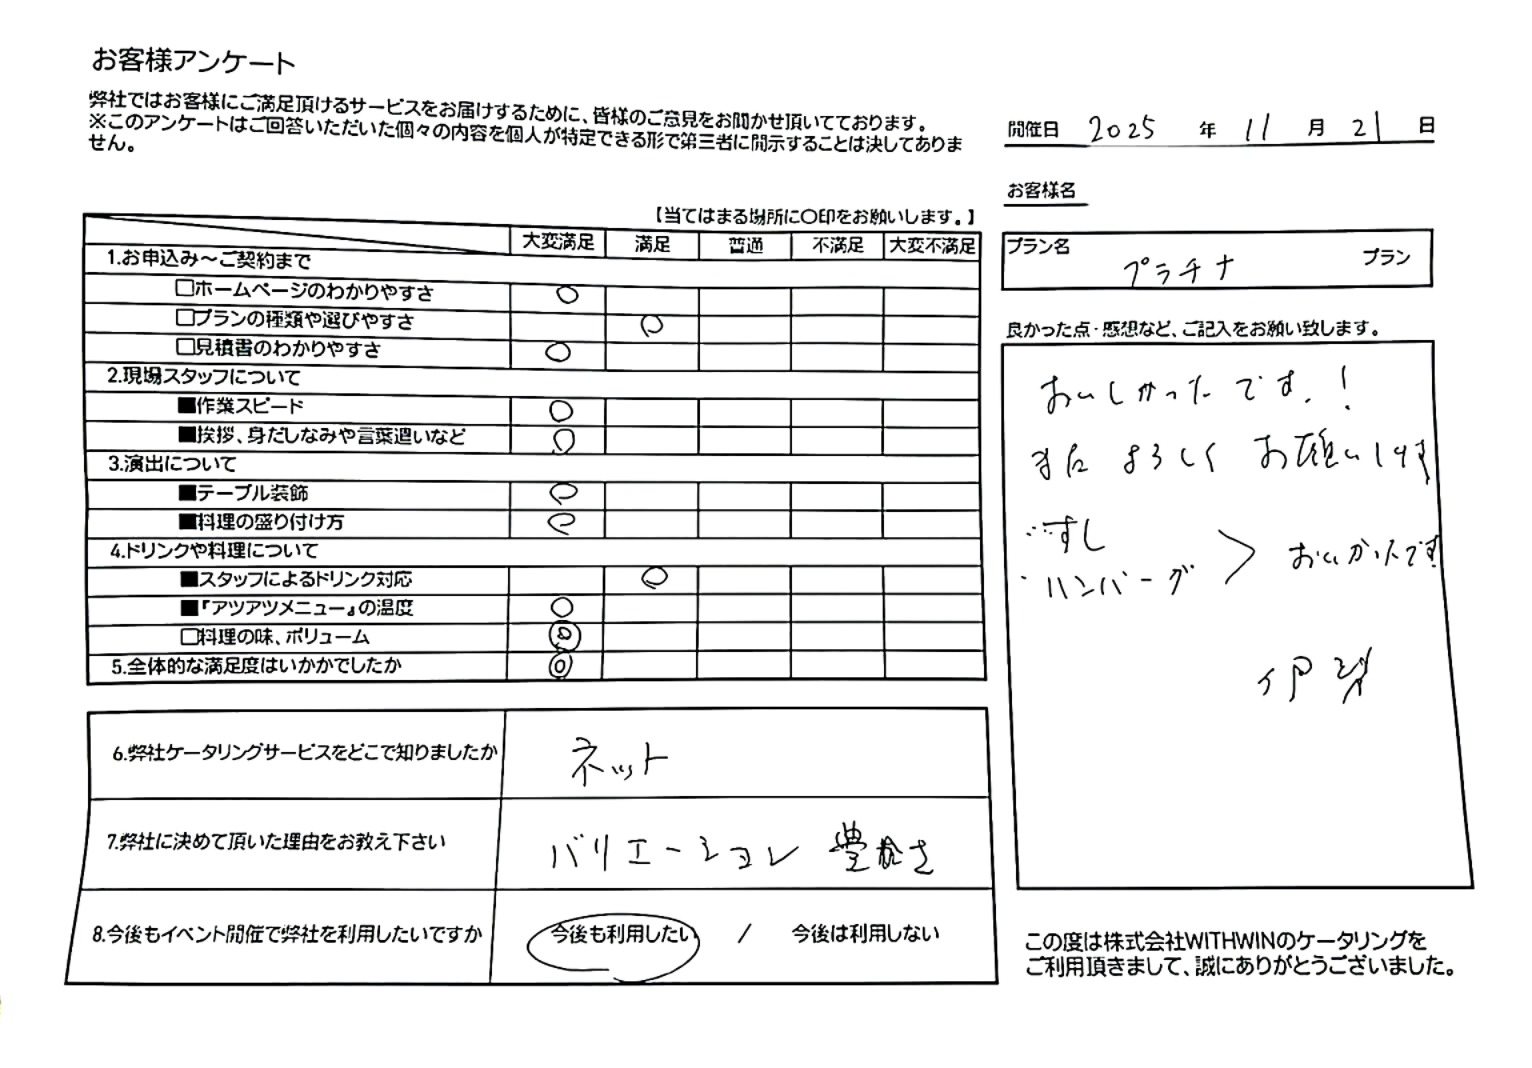 お客様アンケート
弊社ではお客様にご満足頂けるサービスをお届けするために、皆様のご意見をお聞かせ頂いております。
※このアンケートはご回答いただいた個々の内容を個人が特定できる形で第三者に開示することは決してありま
せん。
開催日 2025 年 11 月 21 日
お客様名
【当てはまる場所に〇印をお願いします。】
大変満足 満足 普通 不満足 大変不満足
1.お申込み～ご契約まで
□ホームページのわかりやすさ ○
□プランの種類や選びやすさ ○
□見積書のわかりやすさ ○
2.現場スタッフについて
■作業スピード ○
■挨拶、身だしなみや言葉遣いなど ○
3.演出について
■テーブル装飾 ○
■料理の盛り付け方 ○
4.ドリンクや料理について
■スタッフによるドリンク対応 ○
■『アツアツメニュー』の温度 ○
□料理の味、ボリューム ◎
5.全体的な満足度はいかかでしたか ◎
プラン名 プラチナ プラン
良かった点・感想など、ご記入をお願い致します。
おいしかったです。!
また よろしく お願いします
すし
ハンバーグ > おいしかったです
6.弊社ケータリングサービスをどこで知りましたか ネット
7.弊社に決めて頂いた理由をお教え下さい バリエーション 豊かさ
8.今後もイベント開催で弊社を利用したいですか 今後も利用したい / 今後は利用しない
この度は株式会社WITHWINのケータリングを
ご利用頂きまして、誠にありがとうございました。